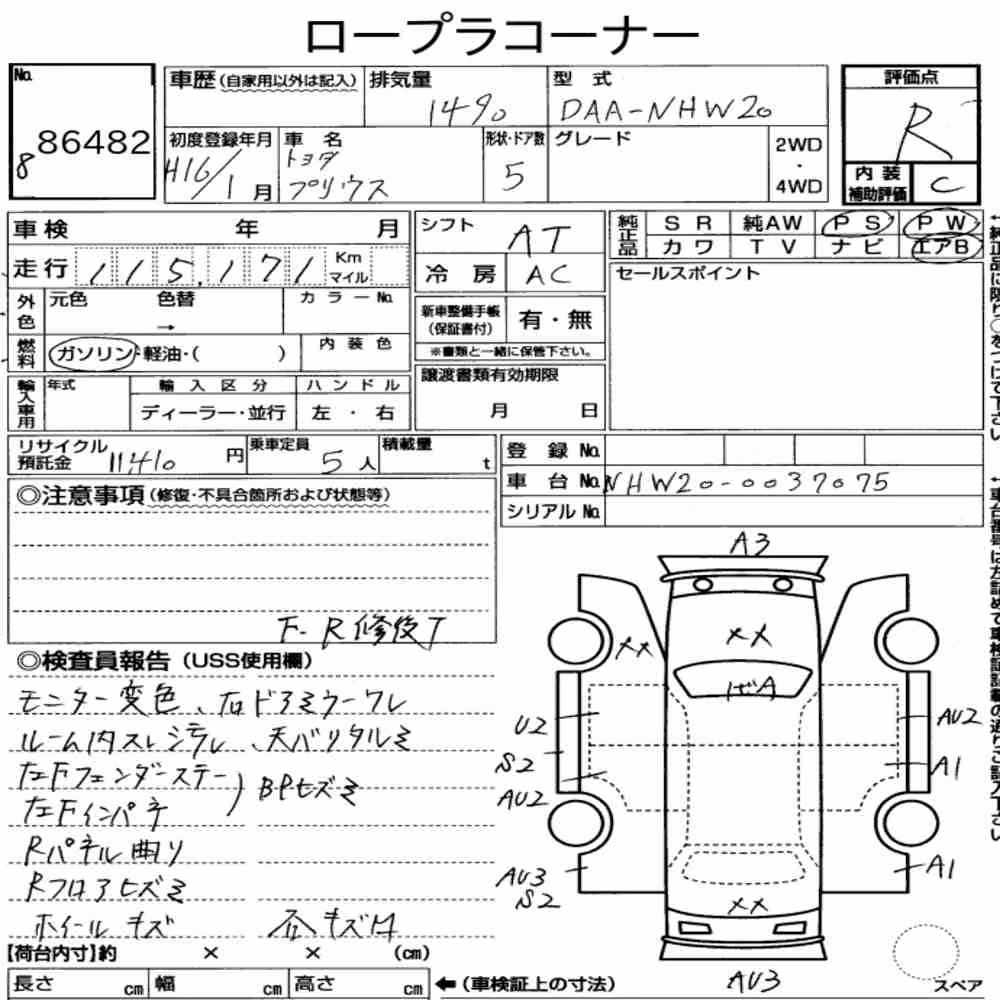 ロープラコーナー
No. 8 86482
車歴(自家用以外は記入)
排気量 1490
型式 DAA-NHW20
評価点 R
初度登録年月 H16/1月
車名 トヨタ プリウス
形状・ドア数 5
グレード
2WD・4WD
内装補助評価 C
車検 年 月
シフト AT
純正品 SR 純AW PS PW
カワ TV ナビ エアB
走行 115,171 Km マイル
冷房 AC
セールスポイント
外色 元色 色替 → カラーNo.
新車整備手帳(保証書付) 有・無
※書類と一緒に保管下さい。
燃料 ガソリン・軽油・( )
内装色
譲渡書類有効期限 月 日
輸入車用 年式 輸入区分 ハンドル
ディーラー・並行 左・右
リサイクル預託金 11410円
乗車定員 5人
積載量 t
登録No.
車台No. NHW20-0037075
シリアルNo.
◎注意事項(修復・不具合箇所および状態等)
F、R修復有
◎検査員報告(USS使用欄)
モニター変色、右ドアミラーワレ
ルーム内スレシテレ、天バリタルミ
左Fフェンダーステー
左Fインパネ
BPヒズミ
Rパネル曲り
Rフロアヒズミ
ホイールキズ
キズ
【荷台内寸】約 × × (cm)
長さ cm 幅 cm 高さ cm
←(車検証上の寸法)
A3
××
××
U2
AU2
S2
A1
AU2
AU3
S2
A1
××
AU3
スペア